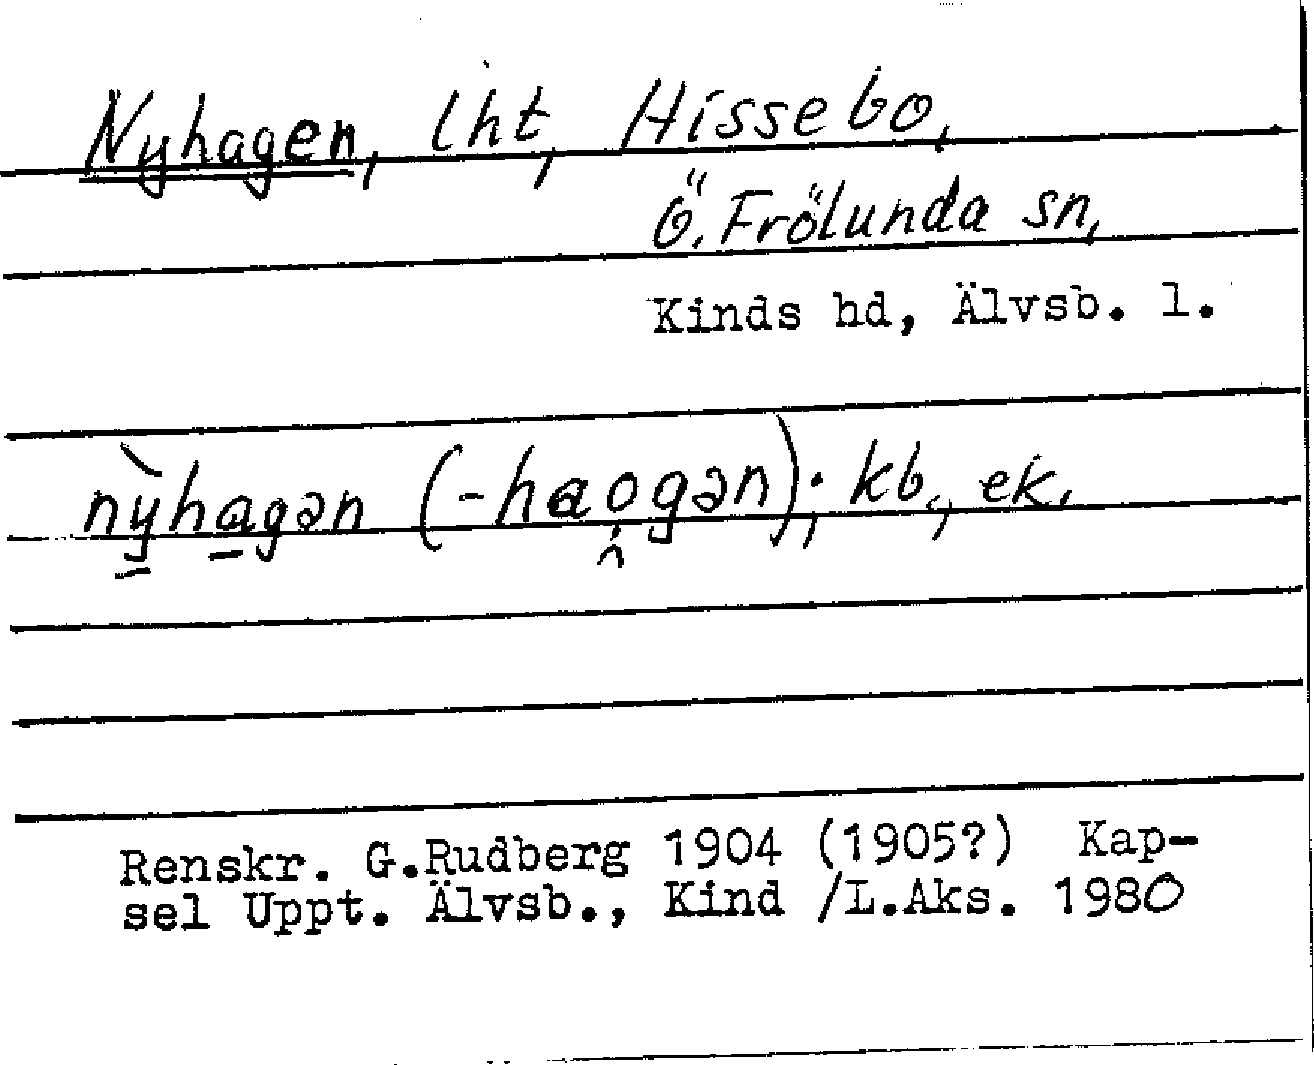 Nyhagen, lht, Hissebo,
Ö. Frölunda sn,
Kinds hd, Älvsb. l.
nỳ̱ha̱gən (-haogən); kb., ek.
Renskr. G.Rudberg 1904 (1905?) Kap-
sel Uppt. Älvsb., Kind /L.Aks. 1980